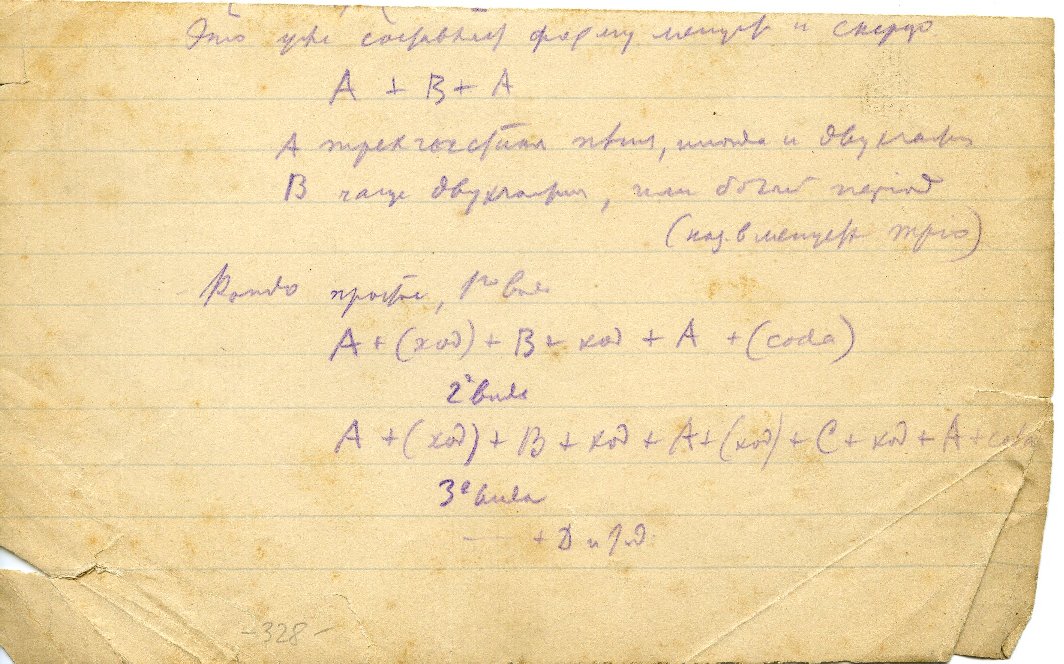 Это уже составляет форму менуэта и скерцо
A + B + A
A трехчастная песня, иногда и двухчастн
B чаще двухчастн, или более період
(наз. в менуэте тріо)
Рондо простое, 1го вида
A + (ход) + B + ход + A + (coda)
2 вида
A + (ход) + B + ход + A + (ход) + C + ход + A + coda
3 вида
— + D и т.д.
-328-